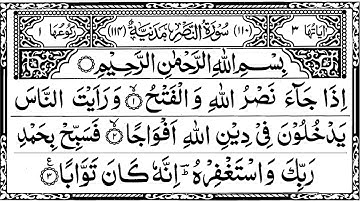 اٰیَاتُهَا ٣ (١١٠) سُوْرَةُ النَّصْرِ مَدَنِیَّةٌ (١١٤) رُكُوْعُهَا ١
بِسْمِ اللهِ الرَّحْمٰنِ الرَّحِیْمِ
اِذَا جَآءَ نَصْرُ اللهِ وَ الْفَتْحُ ۙ﴿١﴾ وَ رَاَیْتَ النَّاسَ
یَدْخُلُوْنَ فِیْ دِیْنِ اللهِ اَفْوَاجًا ۙ﴿٢﴾ فَسَبِّحْ بِحَمْدِ
رَبِّكَ وَ اسْتَغْفِرْهُ ؕ اِنَّهٗ كَانَ تَوَّابًا ﴿٣﴾ ع